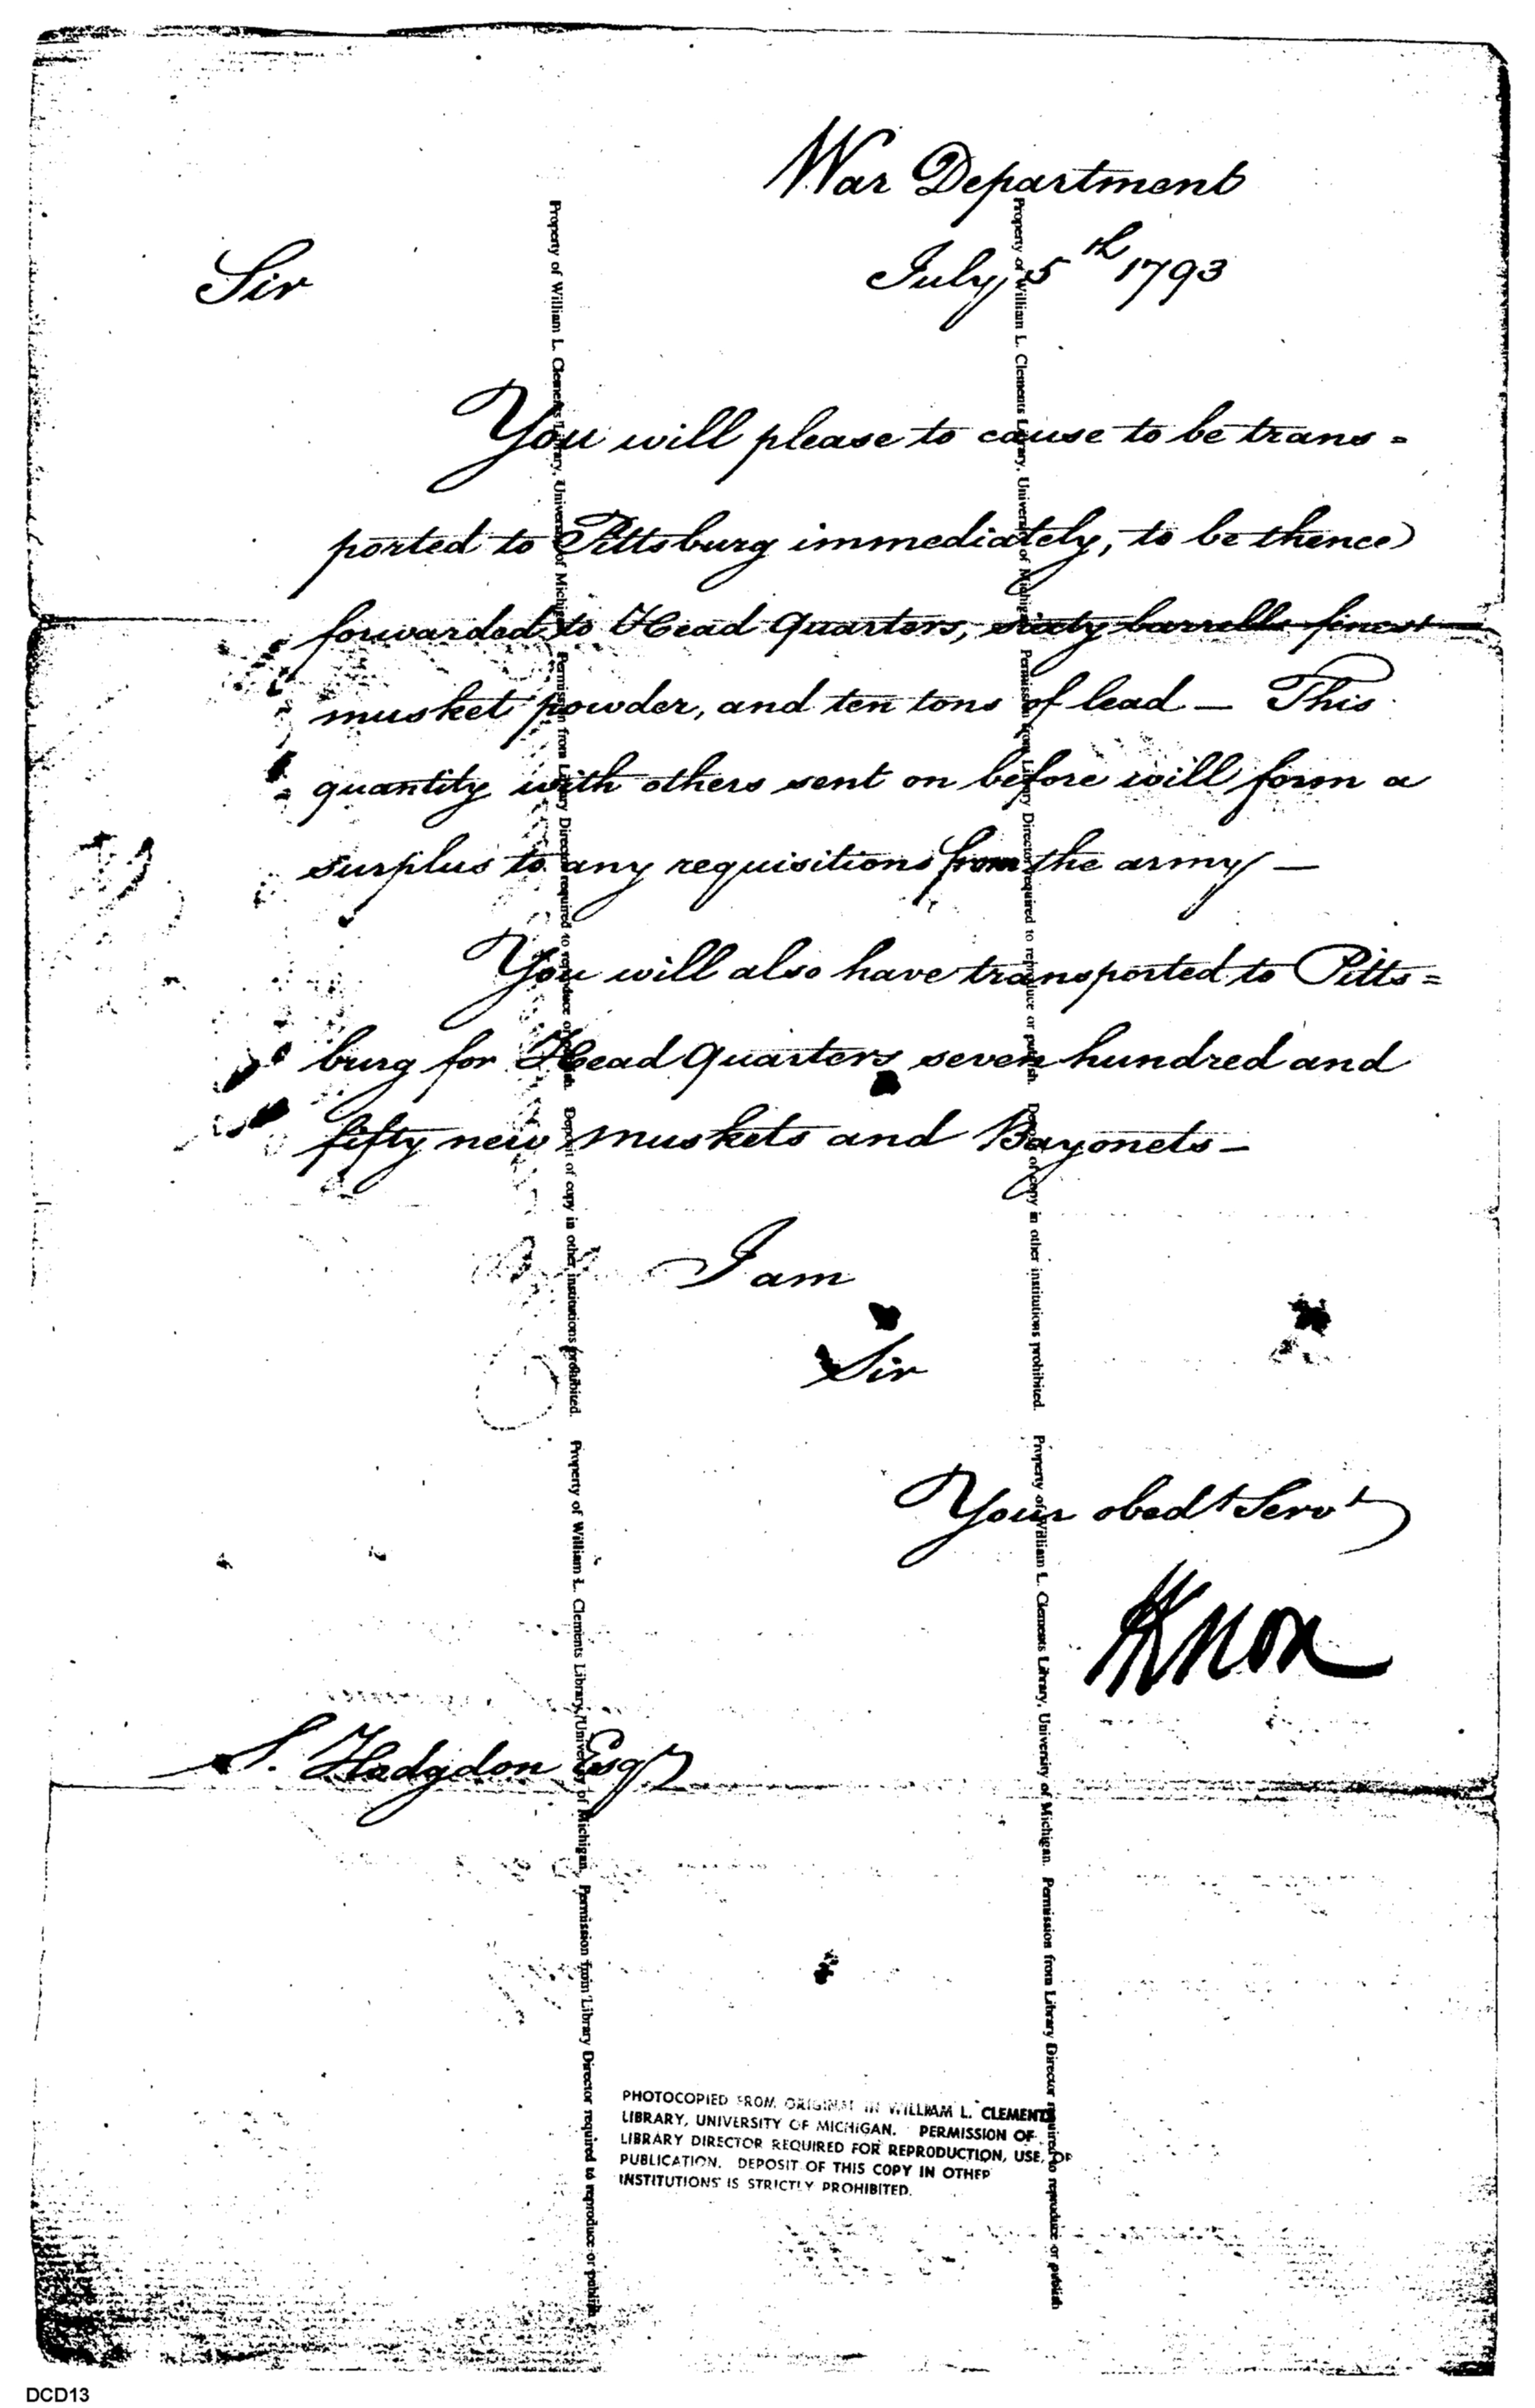 War Department
July 5th 1793
Sir
You will please to cause to be trans=
ported to Pittsburg immediately, to be thence
forwarded to Head Quarters, sixty barrells finest
musket powder, and ten tons of lead — This
quantity with others sent on before will form a
surplus to any requisitions from the army —
You will also have transported to Pitts=
burg for Head Quarters seven hundred and
fifty new muskets and Bayonets —
I am
Sir
Your obedt Servt
HKnox
S. Hodgdon Esqr
Property of William L. Clements Library, University of Michigan. Permission from Library Director required to reproduce or publish. Deposit of copy in other institutions prohibited. Property of William L. Clements Library, University of Michigan. Permission from Library Director required to reproduce or publish
Property of William L. Clements Library, University of Michigan. Permission from Library Director required to reproduce or publish. Deposit of copy in other institutions prohibited. Property of William L. Clements Library, University of Michigan. Permission from Library Director required to reproduce or publish
PHOTOCOPIED FROM ORIGINAL IN WILLIAM L. CLEMENTS
LIBRARY, UNIVERSITY OF MICHIGAN. PERMISSION OF
LIBRARY DIRECTOR REQUIRED FOR REPRODUCTION, USE, OR
PUBLICATION. DEPOSIT OF THIS COPY IN OTHER
INSTITUTIONS IS STRICTLY PROHIBITED.
DCD13